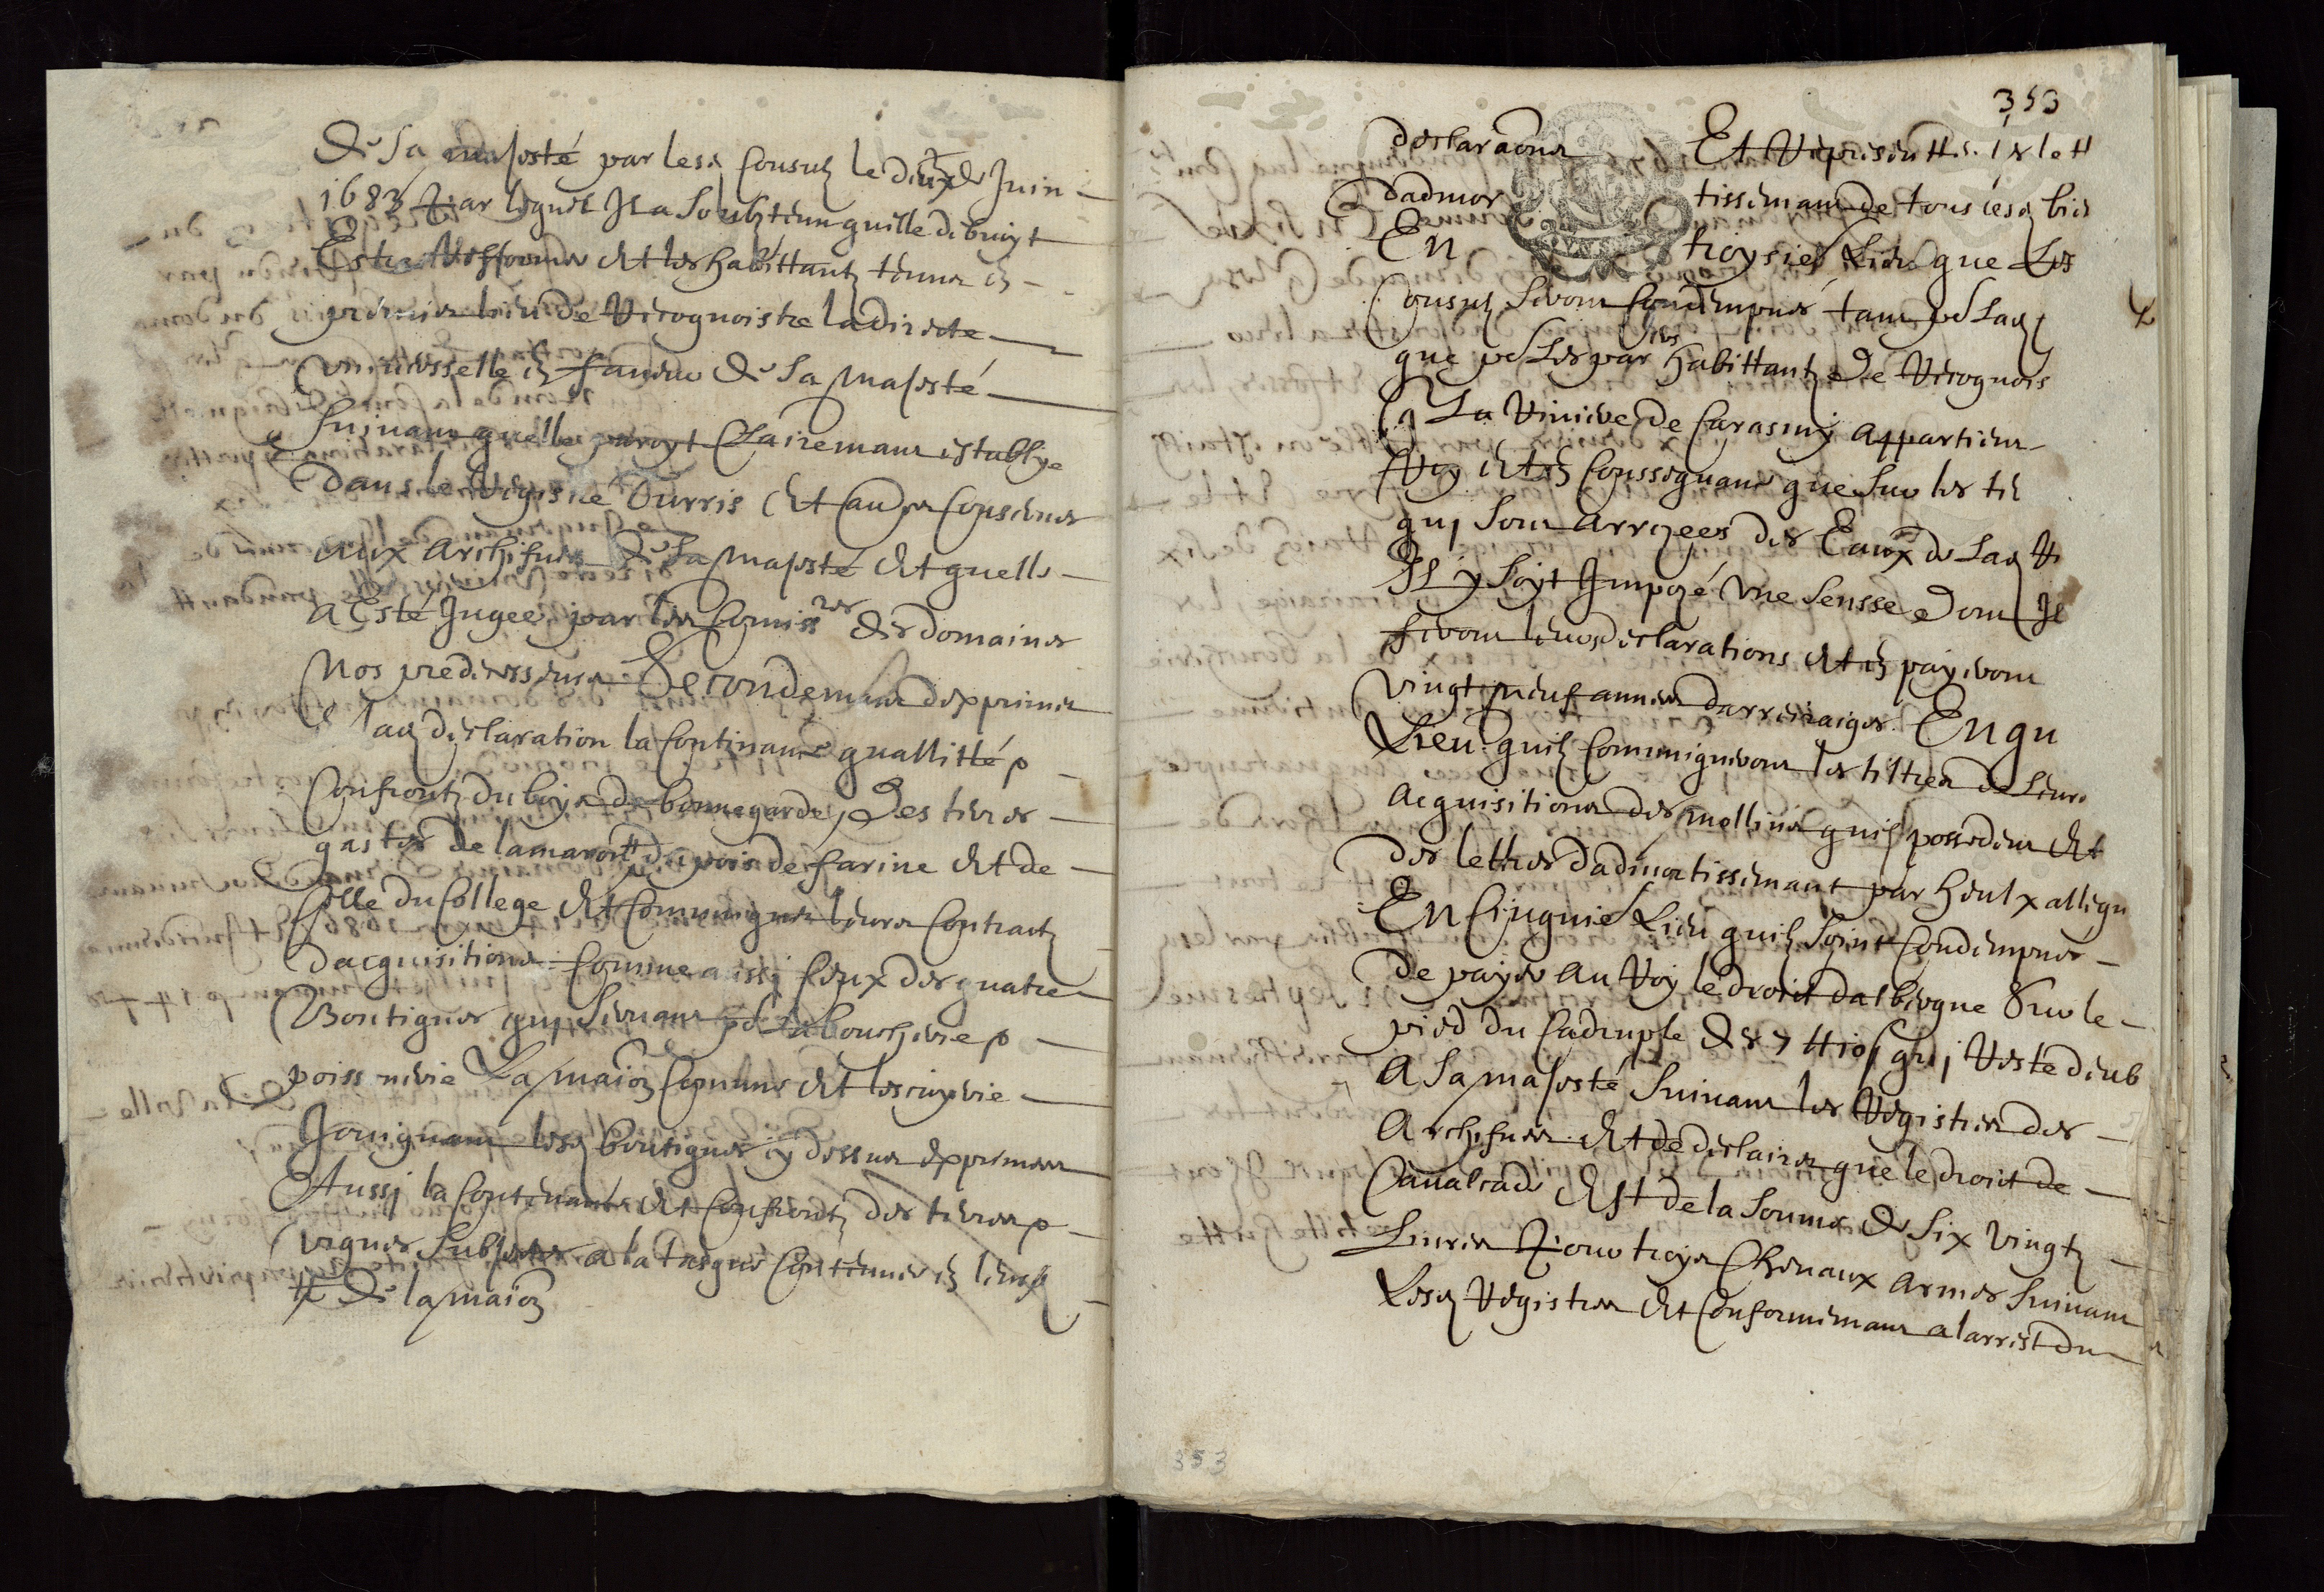 de sa majesté par lesd consulz le dix de Juin
1683 par lequel Il a soubztenu quelle debuoyt
Estre refformée et les habittantz tenus en
premier lieu de recognoistre la directe
vniuersselle en faueur de sa majesté
suiuant quelle paroyt clairemant establye
dans le registre Ourris et autres conserues
aux archifues de sa majesté et quelle
a Esté Jugee par les comiss.res des domaines
nos predecesseurs Secondemant dexprimer
en lad declaration la continance quallitté &
confrontz du boys de bonnegarde, des terres
gastes de lamarontte du pois de farine et de
celle du College et communiquer leurs contractz
dacquisitions comme aissy ceux des quatre
Boutigues quj seruent pr la boucherie &
poissonerie La maison commune et lescuyrie
Jouignant lesd boutigues cy dessus exprimer
Aussj la contenance et confrontz des terres &
vignes subjettes a la tasque contenues en
de la maison
353
declaraõns Et representter les lett
dadmortissemant de tous lesd bie
En troysie. Lieu que Les
Consulz seront condempnes tant pr Lad
que pr Les par.ers habittantz de recognois
La riuiere de Carasmy appartien
roy et en conssequance que sur les te
quj sont arrozees des Eaux de Lad ri
Il y soyt Impozé vne sensse dont Il
feront leurs declarations et en payeront
vingt neuf annees darreiraiges. En qu
Lieu quilz communiqueront les tiltres de leurs
acquisitions des mollins quilz possedent et
des lettres dadmortissemant par heulx allegu
En cinquie. Lieu quilz soint condempnes
de payer au roy le droit dalbergue sur le
pied du cadruple de 7 ₶ 10 s quj resté deub
A sa majesté suiuant les registres des
Archifues et de declairer que le droit de
caualcade Est de la somme de six vingtz
Liures pour troys cheuaux armes suiuant
Lesd registres et conformemant a larrest du
353